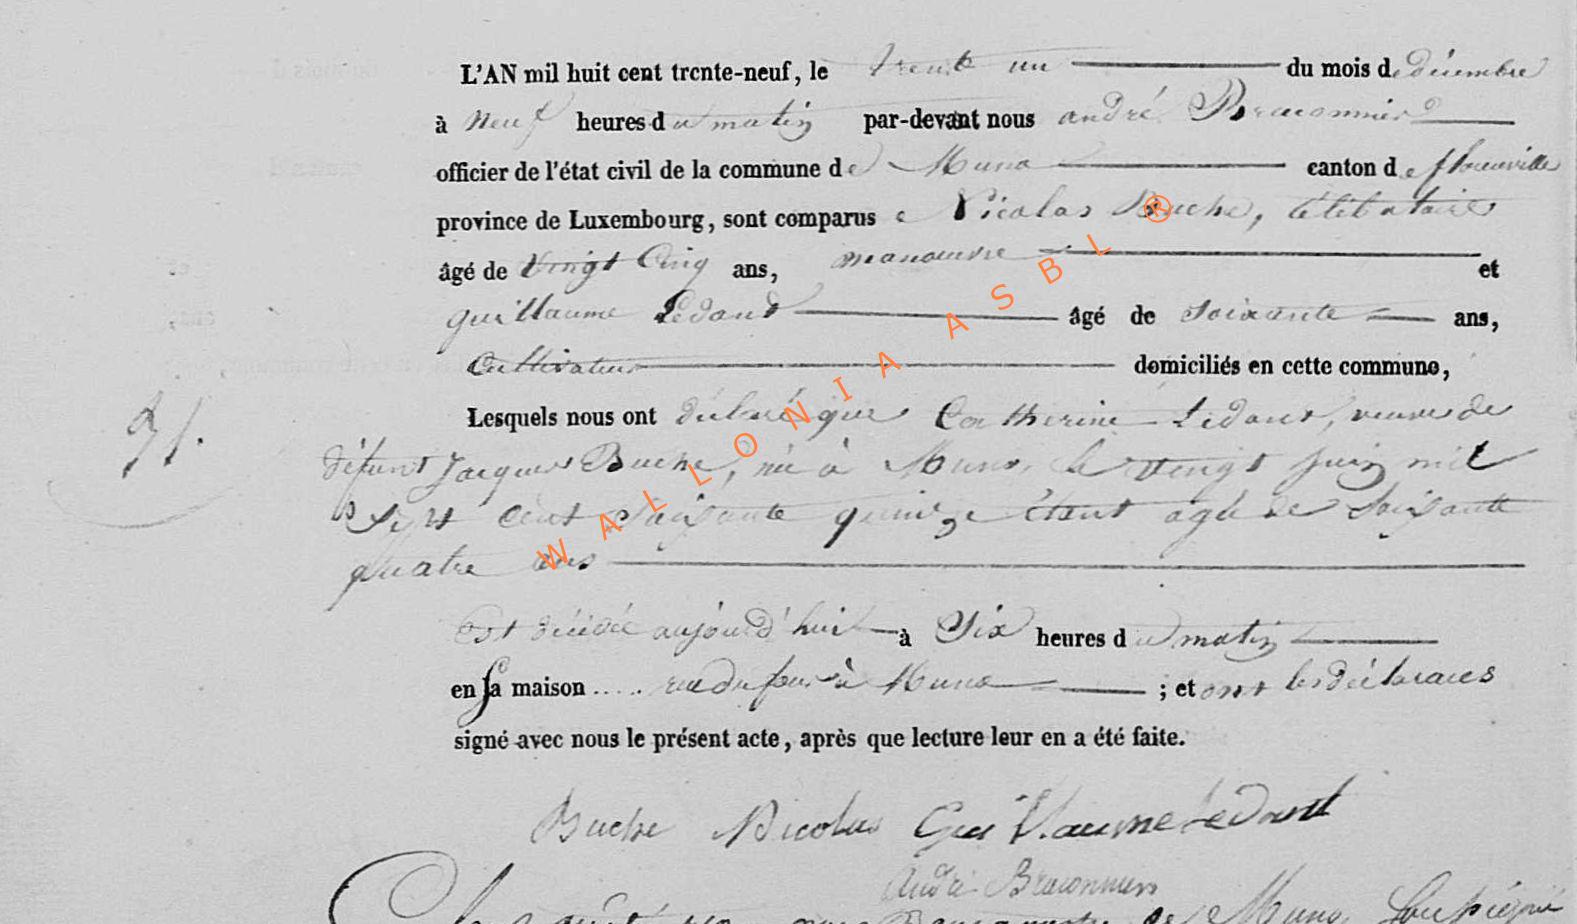 L'AN mil huit cent trente-neuf, le trente un du mois de décembre
à Neuf heures du matin par-devant nous andré Braconnier
officier de l'état civil de la commune de Muno canton de florenville
province de Luxembourg, sont comparus e Nicolas Buche, célibataire
âgé de Vingt Cinq ans, manoeuvre et
guillaume Lédant âgé de soixante ans,
Cultivateur domiciliés en cette commune,
Lesquels nous ont déclaré que Catherine Lédant, veuve de
31.
défunt Jacques Buche, née à Muno, le vingt juin mil
Sept cent soixante quinze étant agée de Soixante
quatre ans
Est décédée aujourd'hui à Six heures du matin
en sa maison ..... rue du four à Muno ; et ont les déclarans
signé avec nous le présent acte, après que lecture leur en a été faite.
Buche Nicolas Guillaume Ledant
André Braconnier
de Muno
WALLONIA ASBL ®